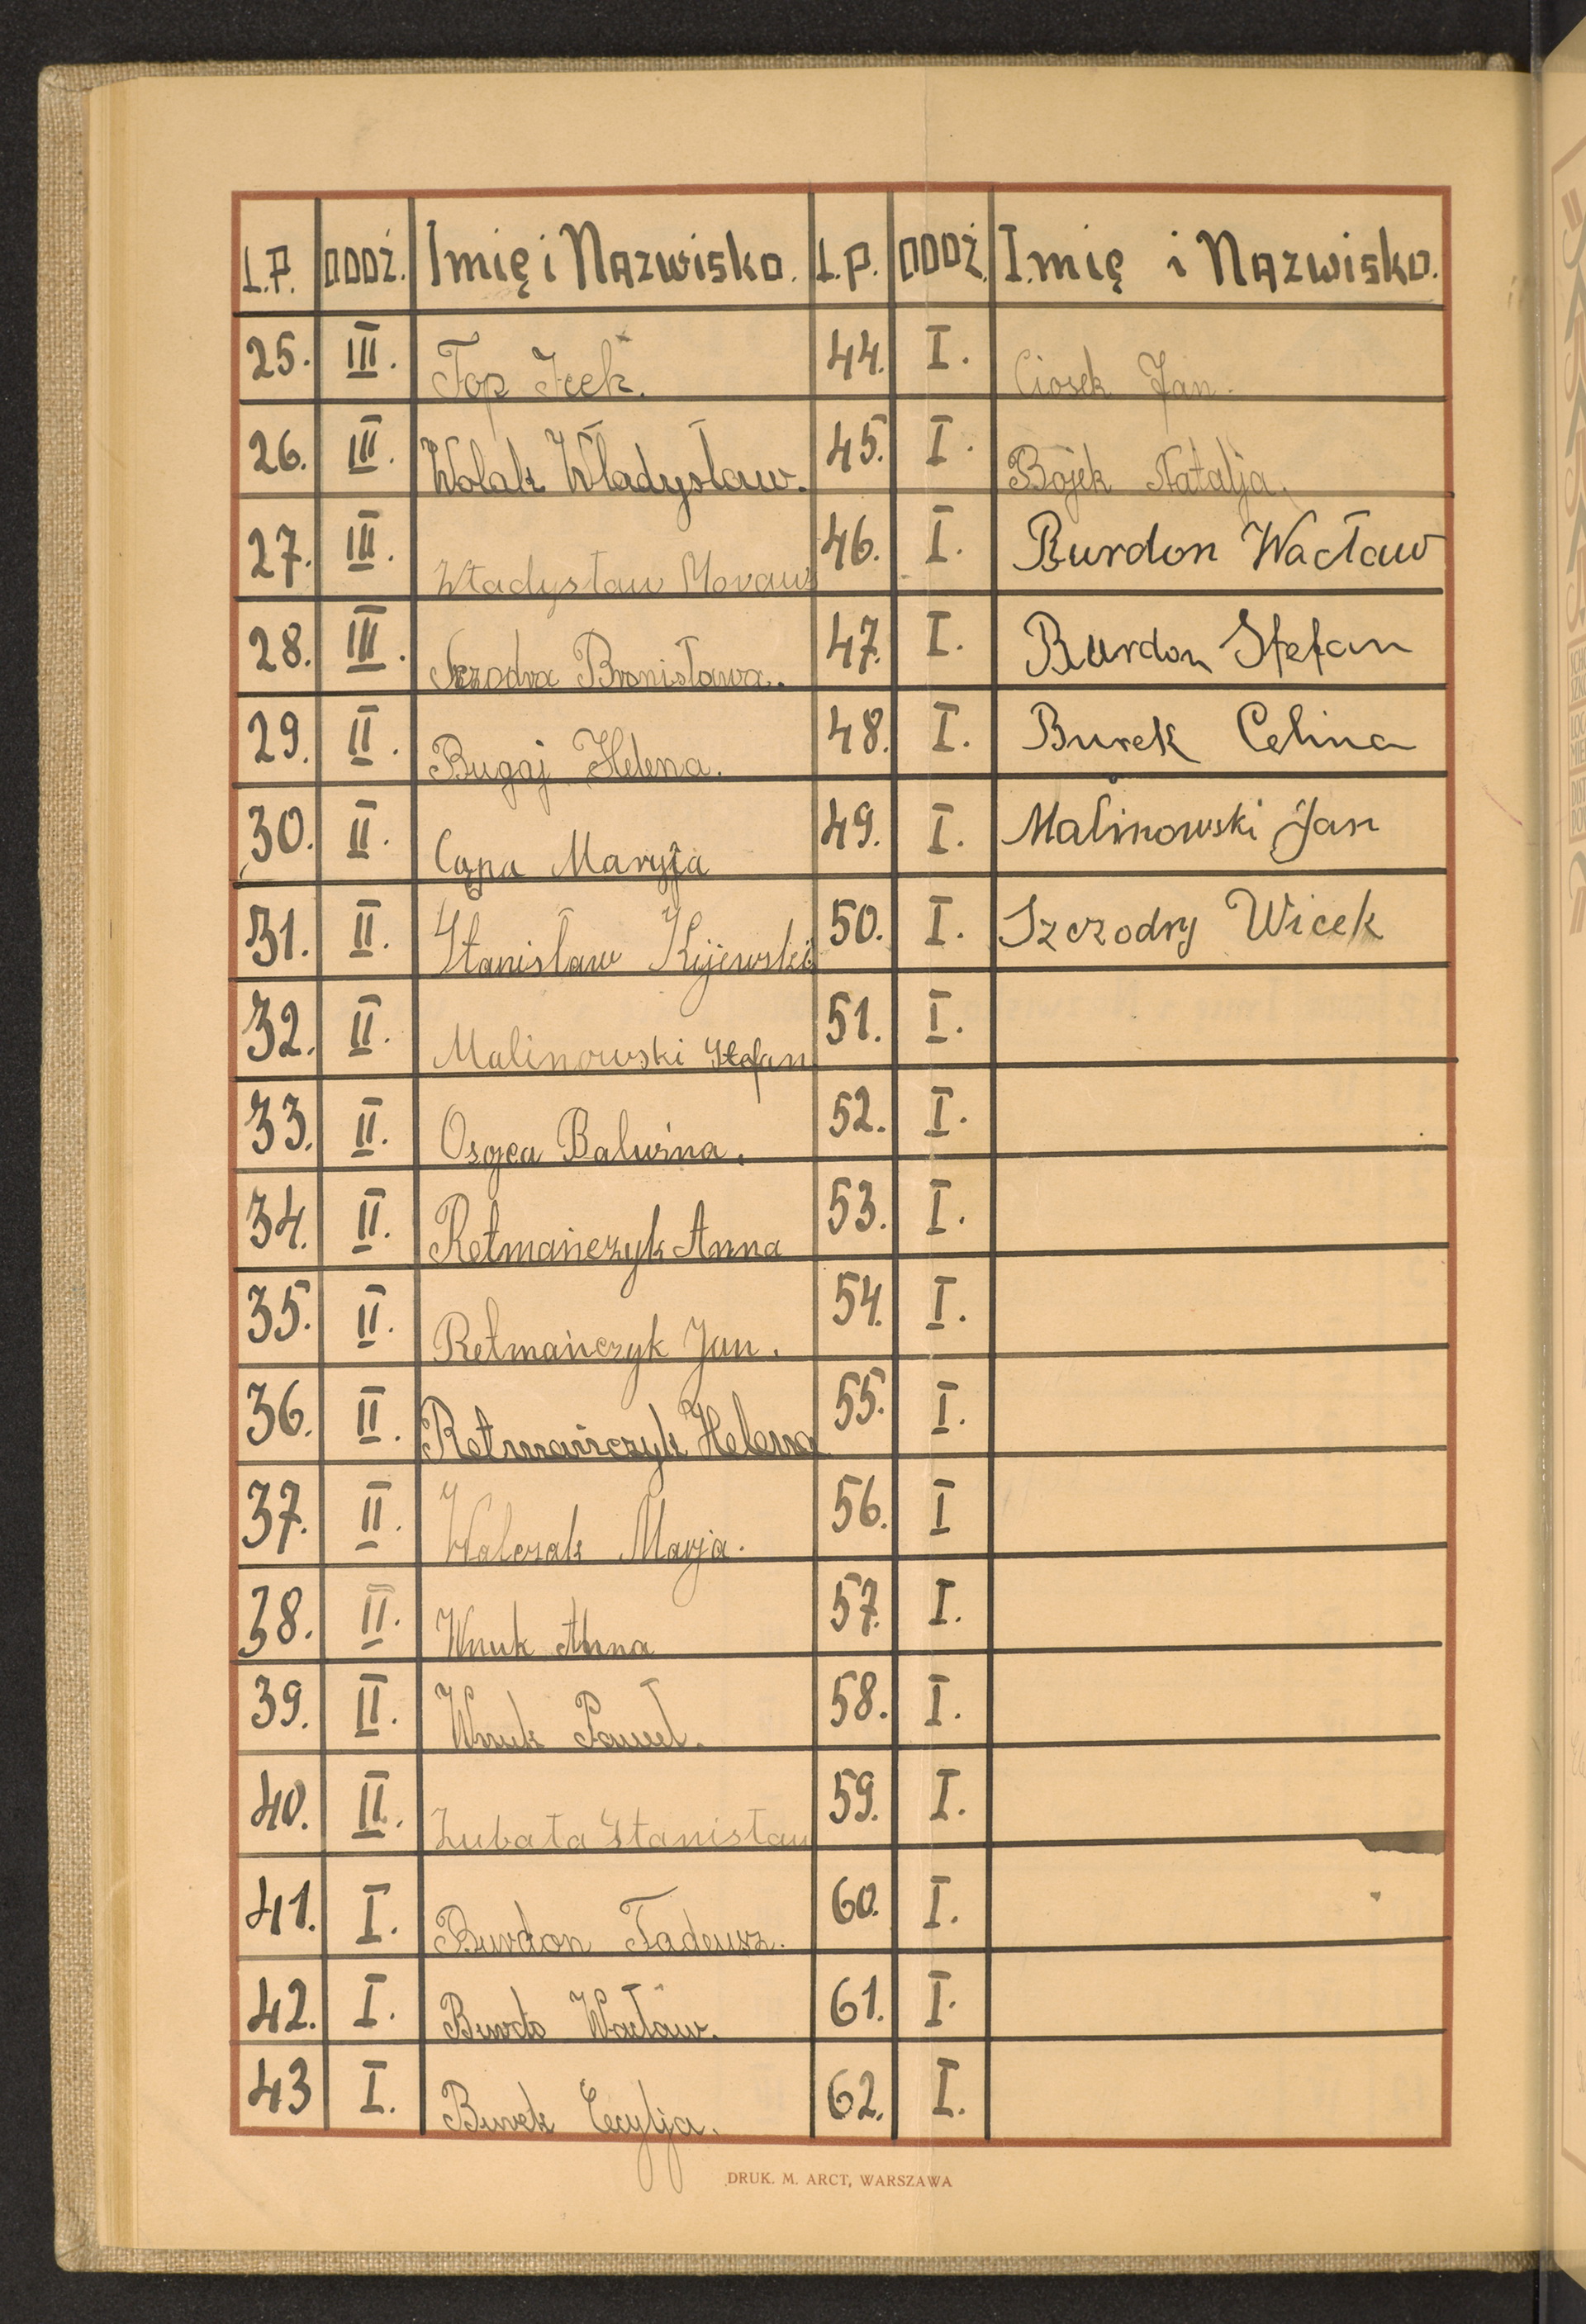 L.P. ODDZ. Imię i Nazwisko. L.P. ODDZ. Imię i Nazwisko.
25. III. Fop Icek. 44. I. Ciosek Jan.
26. III. Wolak Władysław. 45. I. Bojek Natalja.
27. III. Władysław Moraws 46. I. Burdon Wacław
28. III. Szzodra Bronisława. 47. I. Burdon Stefan
29. II. Bugaj Helena. 48. I. Burek Celina
30. II. Cąpa Maryja 49. I. Malinowski Jan
31. II. Stanisław Kijewski 50. I. Szczodry Wicek
32. II. Malinowski Stefan 51. I.
33. II. Osojca Balwina. 52. I.
34. II. Retmańczyk Anna 53. I.
35. II. Retmańczyk Jan. 54. I.
36. II. Retmańczyk Helena 55. I.
37. II. Walczak Marja. 56. I
38. II. Wnuk Anna 57. I.
39. II. Wnuk Paweł. 58. I.
40. II. Zubała Stanisław 59. I.
41. I. Burdon Tadeusz. 60. I.
42. I. Burdo Wacław. 61. I.
43 I. Burek Cecylja. 62. I.
DRUK. M. ARCT, WARSZAWA